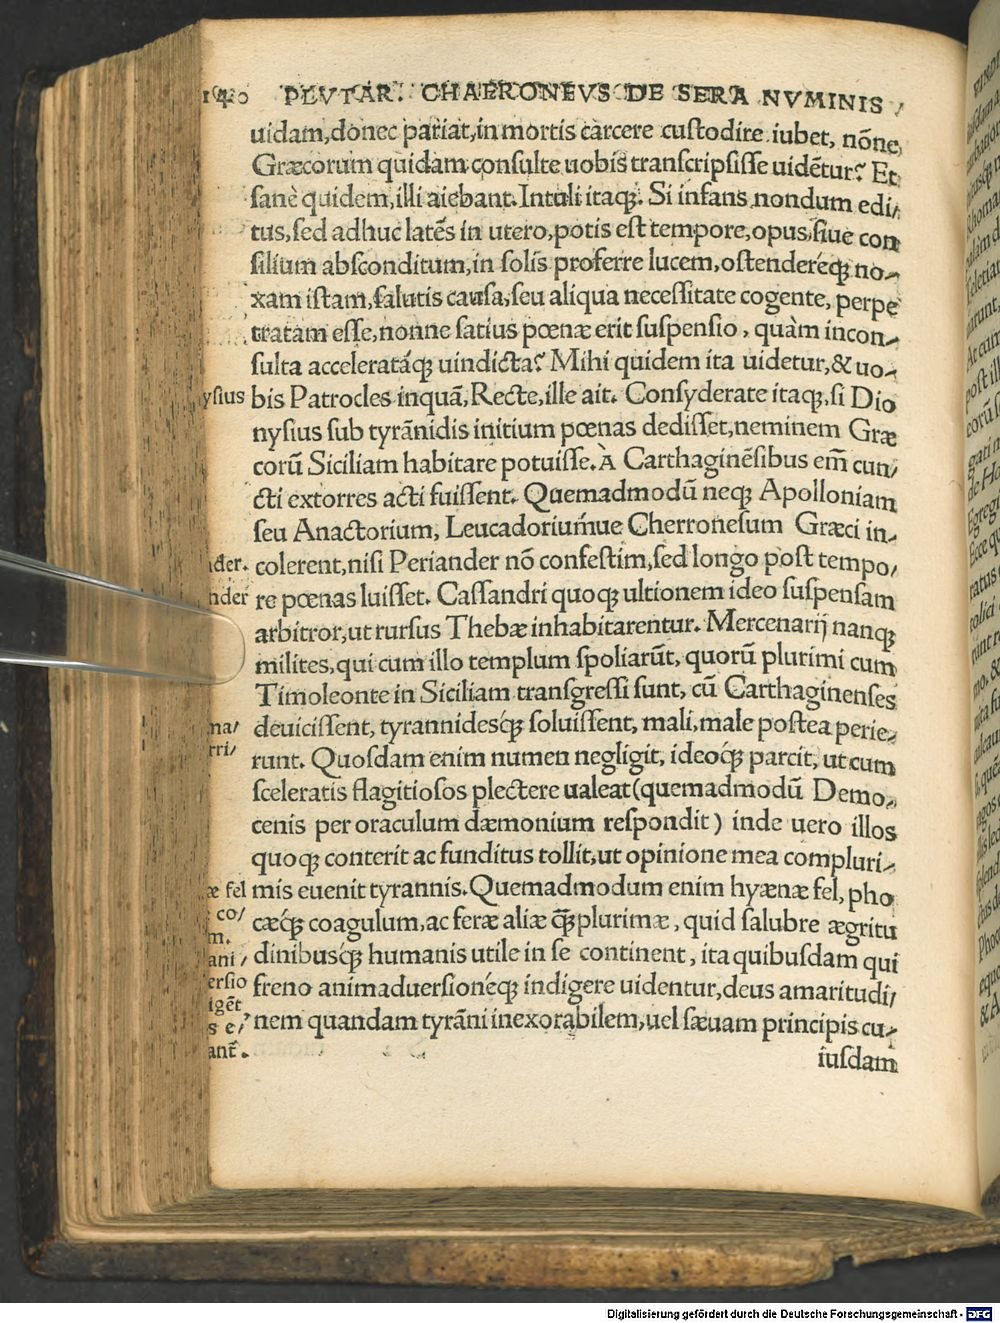 PLVTAR. CHAERONEVS DE SERA NVMINIS
uidam,donec pariat,in mortis carcere custodire iubet, nõne
Græcorum quidam consulte uobis transcripsisse uidẽtur? Et
sanè quidem,illi aiebant. Intuli itaqʒ. Si infans nondum edi/
tus,sed adhuc latẽs in utero,potis est tempore,opus,siue con
silium absconditum,in solis proferre lucem,ostenderéqʒ no-
xam istam,salutis causa,seu aliqua necessitate cogente, perpe
tratam esse,nonne satius pœnæ erit suspensio, quàm incon-
sulta acceleratáqʒ uindicta? Mihi quidem ita uidetur,& uo-
ysius bis Patrocles inquã, Recte, ille ait. Consyderate itaqʒ,si Dio
nysius sub tyrãnidis initium pœnas dedisset,neminem Græ
corũ Siciliam habitare potuisse. À Carthaginẽsibus em̃ cun/
cti extorres acti fuissent. Quemadmodũ neqʒ Apolloniam
seu Anactorium, Leucadoriuḿue Cherronesum Græci in-
nder. colerent,nisi Periander nõ confestim,sed longo post tempo/
nder re pœnas luisset. Cassandri quoqʒ ultionem ideo suspensam
arbitror,ut rursus Thebæ inhabitarentur. Mercenarij nanqʒ
milites,qui cum illo templum spoliarũt, quorũ plurimi cum
Timoleonte in Siciliam transgressi sunt, cũ Carthaginenses
na/ deuicissent, tyrannidesq́ʒ soluissent, mali,male postea perie-
rri/ runt. Quosdam enim numen negligit, ideoq́ʒ parcit, ut cum
sceleratis flagitiosos plectere ualeat(quemadmodũ Demo-
cenis per oraculum dæmonium respondit) inde uero illos
quoqʒ conterit ac funditus tollit,ut opinione mea compluri-
æ fel mis euenit tyrannis. Quemadmodum enim hyænæ fel, pho
co/ cæq́ʒ coagulum,ac feræ aliæ q̃ʒplurimæ, quid salubre ægritu
m.
ani/ dinibusq́ʒ humanis utile in se continent, ita quibusdam qui
ersio freno animaduersionéqʒ indigere uidentur,deus amaritudi/
igẽt
s e/ nem quandam tyrãni inexorabilem,uel sæuam principis cu-
ant̃.
iusdam
Digitalisierung gefördert durch die Deutsche Forschungsgemeinschaft - DFG